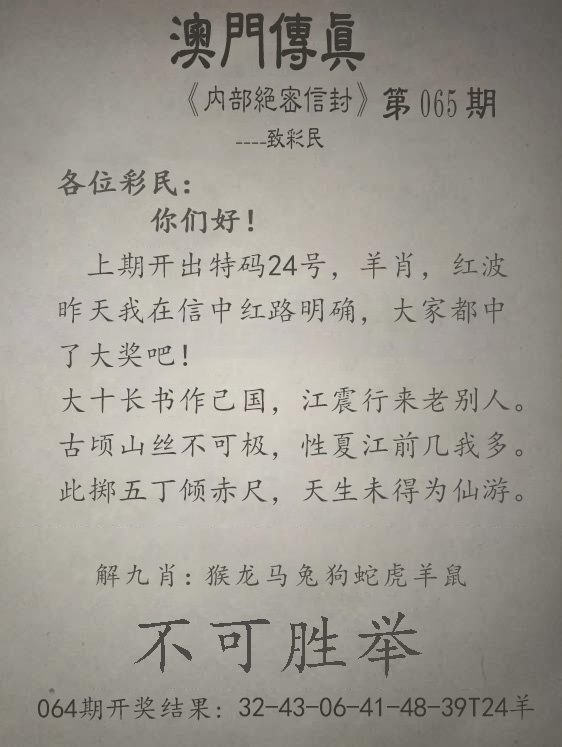 澳門傳眞
《内部絕密信封》第065期
----致彩民
各位彩民：
你们好！
上期开出特码24号，羊肖，红波
昨天我在信中红路明确，大家都中
了大奖吧！
大十长书作己国，江震行来老别人。
古顷山丝不可极，性夏江前几我多。
此掷五丁倾赤尺，天生未得为仙游。
解九肖：猴龙马兔狗蛇虎羊鼠
不可胜举
064期开奖结果：32-43-06-41-48-39T24羊